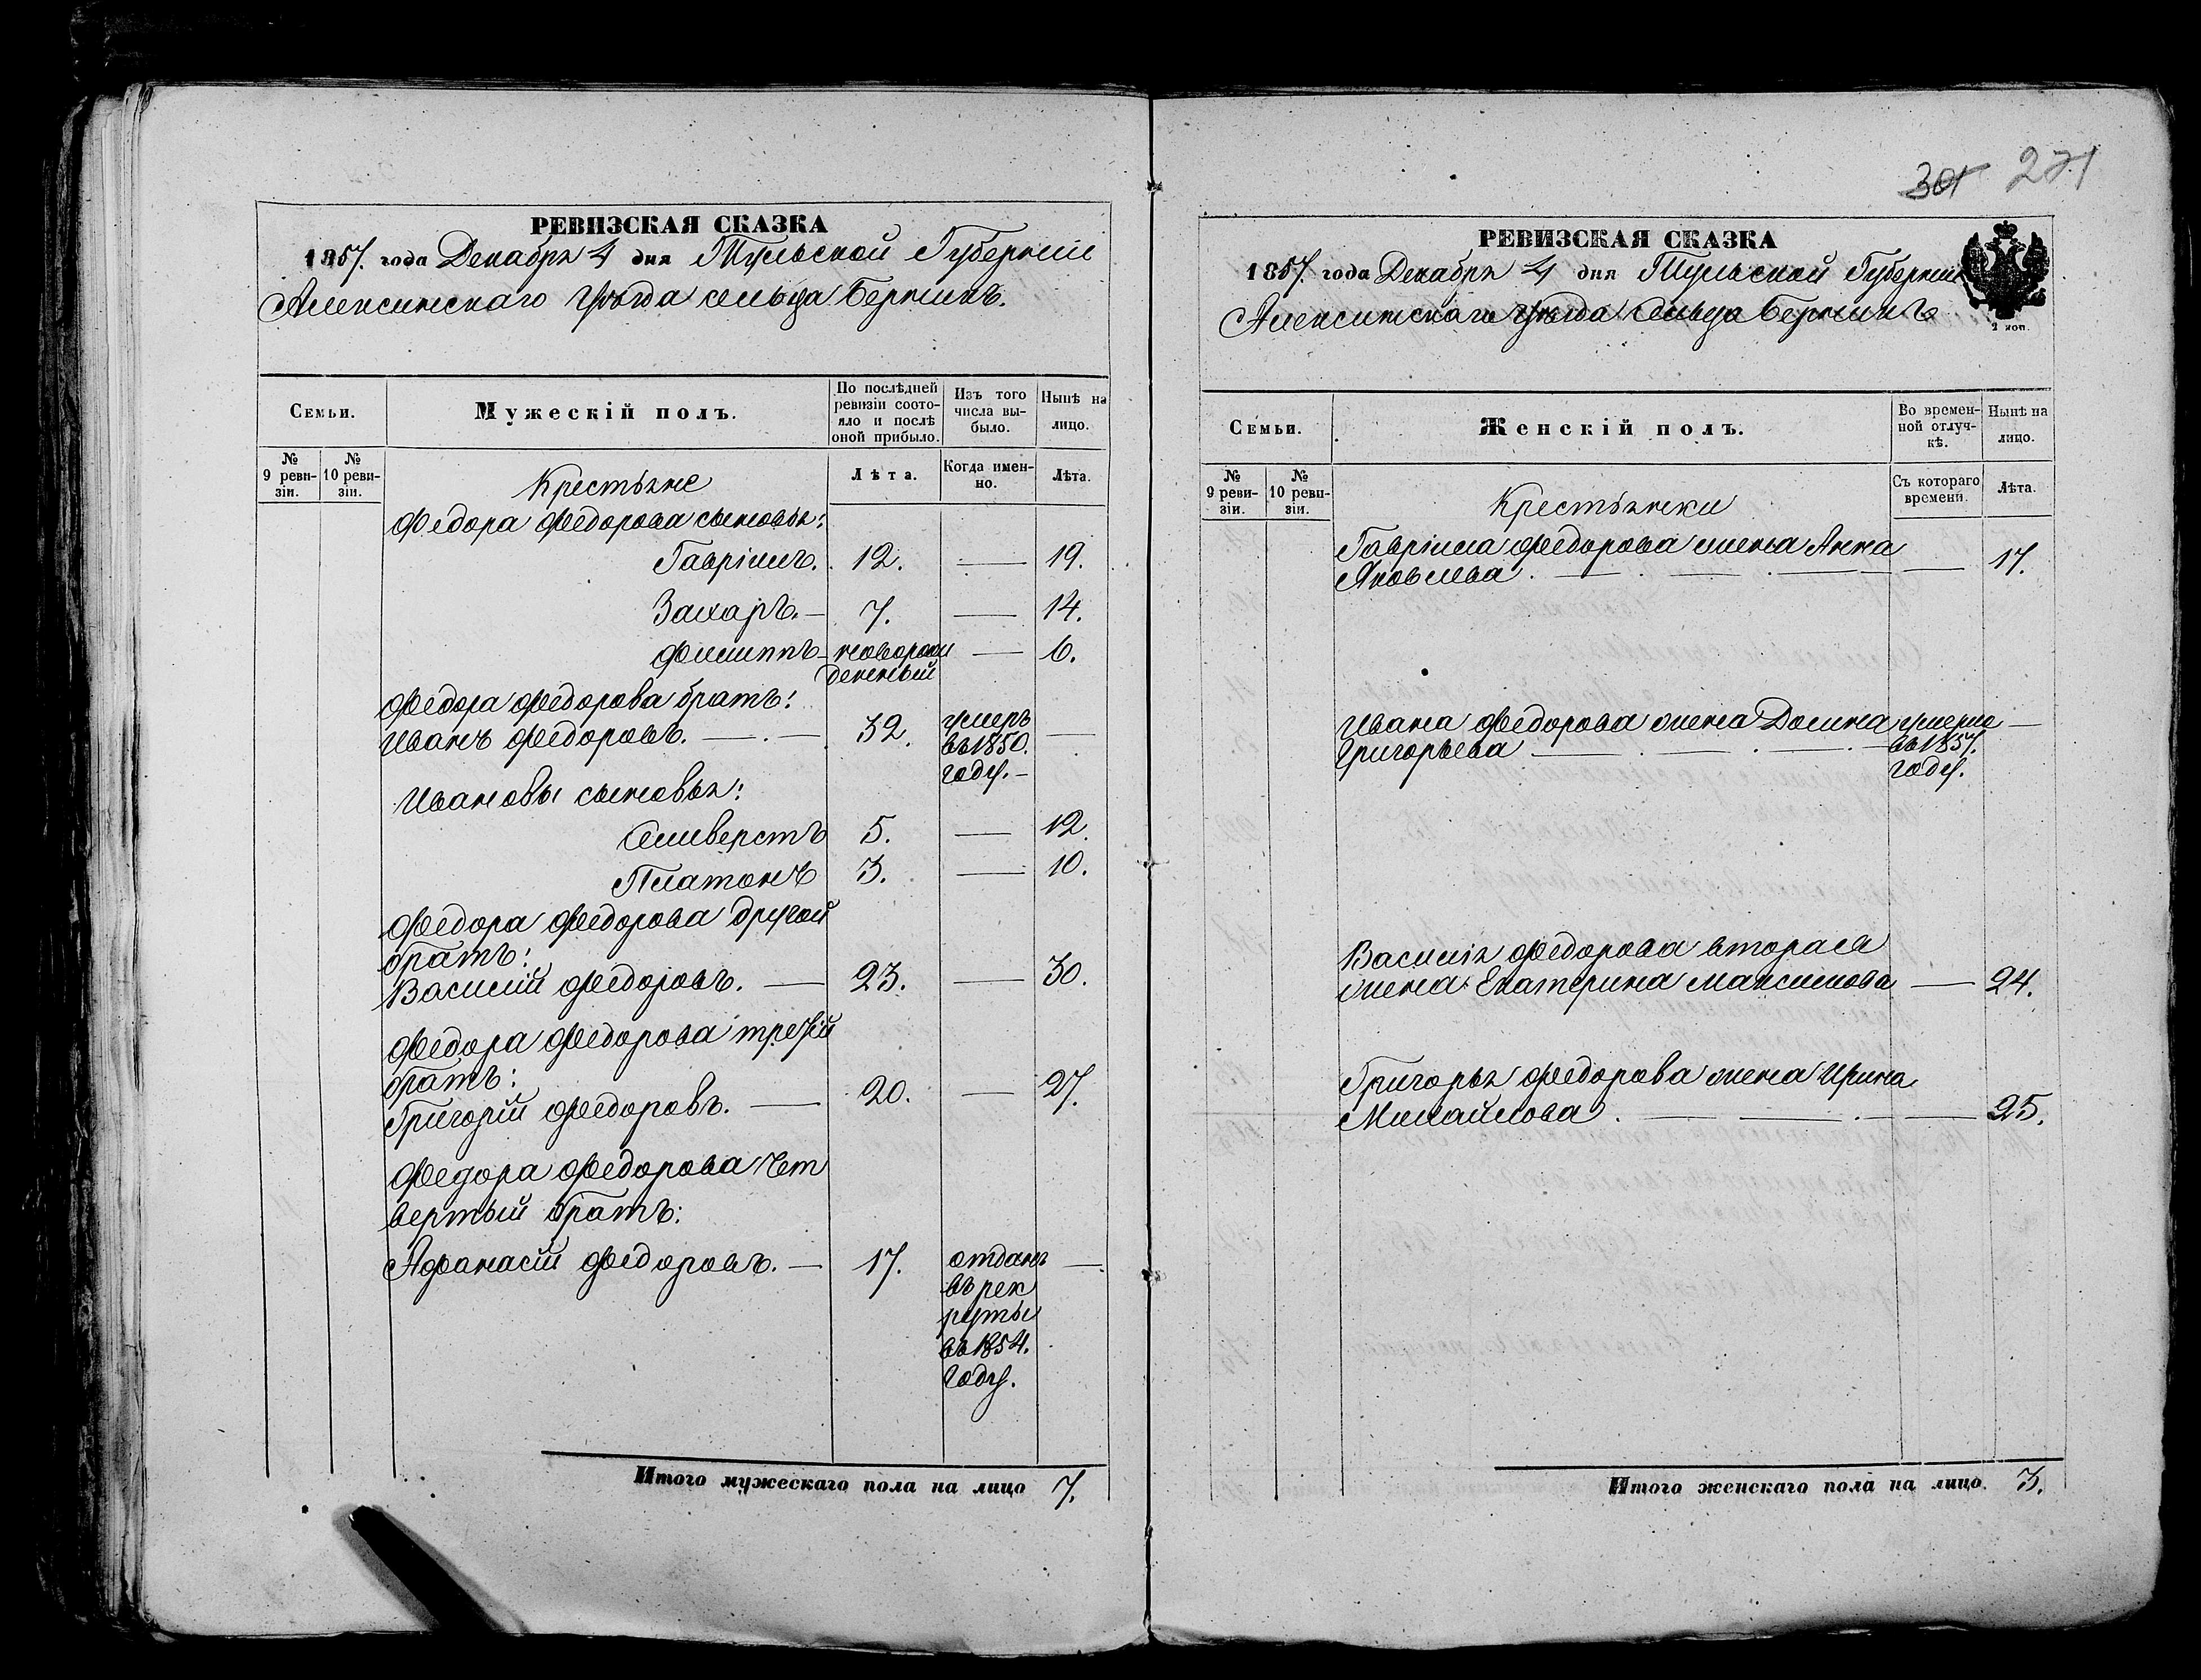 РЕВИЗСКАЯ СКАЗКА
1857. года Декабря 4 дня Тульской Губерніи
Алексинскаго Уѣзда сельца
Семьи.
Мужескій полъ.
По послѣдней ревизіи состояло и послѣ оной прибыло.
Изъ того числа выбыло.
Нынѣ на лицо.
№ 9 ревизіи.
№ 10 ревизіи.
Лѣта.
Когда именно.
Лѣта.
Крестьяне
Федора Федорова сыновья:
Гавріилъ. 12. — 19.
Захаръ. — 7. — 14.
Филиппъ — новорож — 6.
денный
Федора Федорова братъ:
Иванъ Федоровъ. — . — 32. умеръ —
въ 1850.
году. —
Ивановы сыновья:
Селиверстъ 5. — 12.
Платонъ 3. — 10.
Федора Федорова другой
братъ:
Василий Федоровъ. — 23. — 30.
Федора Федорова третій
братъ:
Григорій Федоровъ. — 20. — 27.
Федора Федорова чет
вертый братъ:
Афанасій Федоровъ. — 17. отданъ —
въ рек
руты
въ 1854.
году.
Итого мужескаго пола на лицо 7.
301 271
РЕВИЗСКАЯ СКАЗКА
1857. года Декабря 4 дня Тульской Губерніи
Алексинскаго Уѣзда Сельца
2 коп.
Семьи.
Женскій полъ.
Во временной отлучкѣ.
Нынѣ на лицо.
№ 9 ревизіи.
№ 10 ревизіи.
Съ котораго времени.
Лѣта.
Крестьянки
Гавріила Федорова жена Анна
Яковлева. — . — . — 17.
Ивана Федорова жена Домна умерла —
Григорьева — . — . — въ 1857.
году.
Василія Федорова вторая
жена Екатерина Максимова — 24.
Григорья Федорова жена Ирина
Михайлова. — — . — 25.
Итого женскаго пола на лицо. 3.